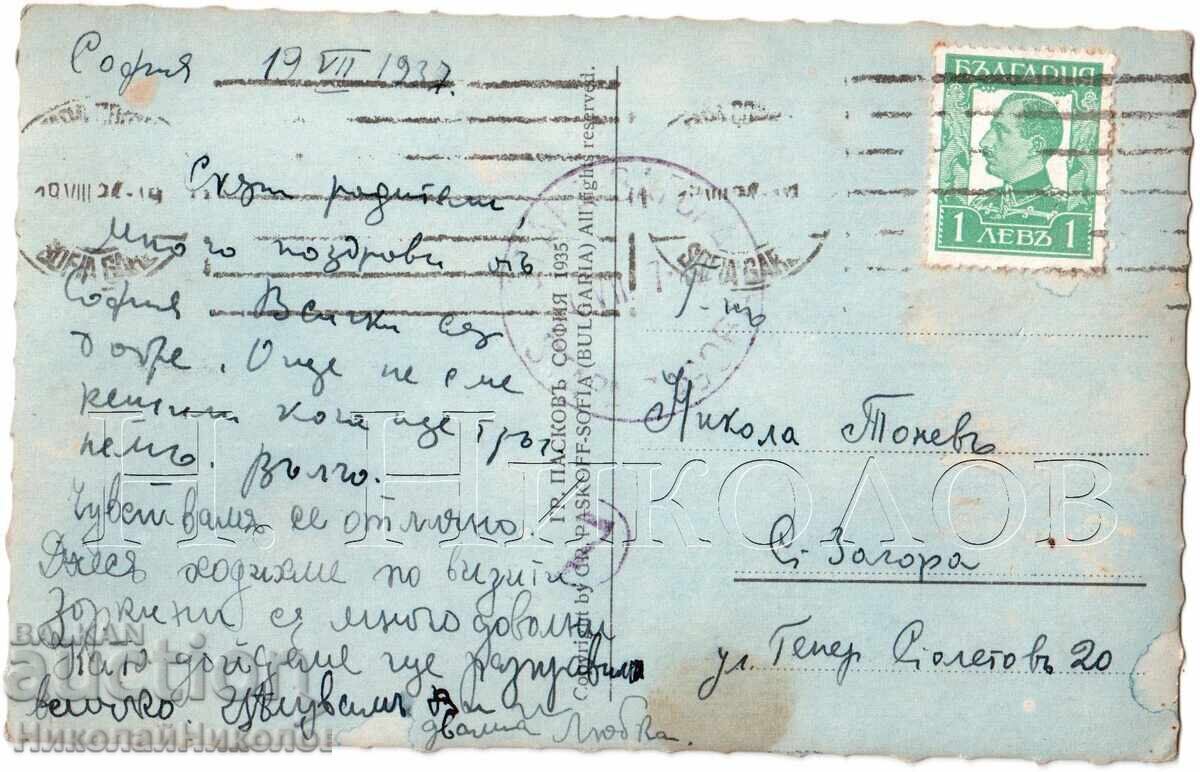 София 19 VII 1937.
Скъпи родители,
Много поздрави отъ
София. Всички са
добре. Още не сме
кога ще тръг
немъ. Вълчо.
Чувствамъ се отлично.
Днесъ ходихме по визити
Зоркини са много доволни
Като дойдеме ще разправимъ
всичко. Цѣлувамъ Ви
двама Любка.
ГР. ПАСКОВЪ СОФИЯ 1935
Copyright by GR. PASKOFF-SOFIA (BULGARIA) All rights reserved.
БЪЛГАРИЯ
1 ЛЕВЪ 1
SOFIA GARE
SOFIA GARE
Г-нъ
Никола Тоневъ
Ст. Загора
ул. Генер Столетовъ 20
Н. Николов
BALKAN
auction
НиколайНиколов